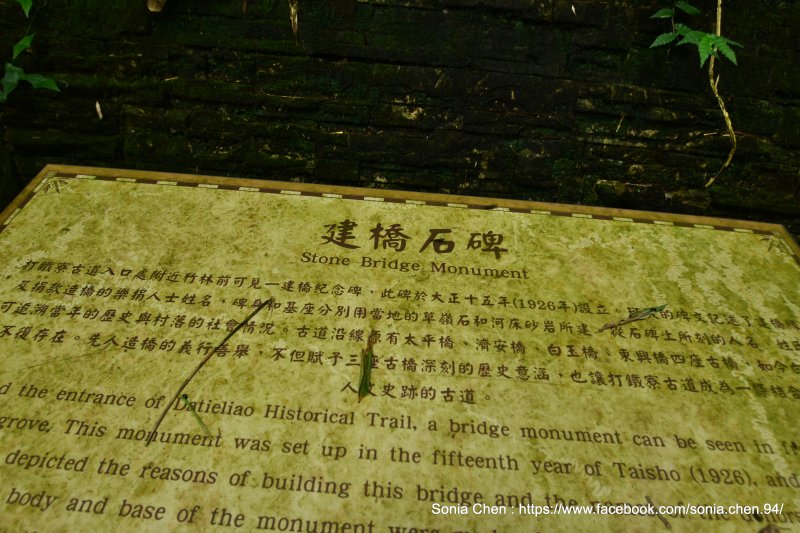 建橋石碑
Stone Bridge Monument
打鐵寮古道入口處附近竹林前可見一建橋紀念碑，此碑於大正十五年(1926年)設立。
及捐款造橋的樂捐人士姓名，碑身和基座分別用當地的草嶺石和河床砂岩所建，從石碑上所刻的人名，
可追溯當年的歷史與村落的社會情況。古道沿線原有太平橋、濟安橋、白玉橋、東興橋四座古橋，如今
不復存在。先人造橋的義行善舉，不但賦予三座古橋深刻的歷史意涵，也讓打鐵寮古道成為一條結合
人文史跡的古道。
the entrance of Datieliao Historical Trail, a bridge monument can be seen in
grove. This monument was set up in the fifteenth year of Taisho (1926), and
depicted the reasons of building this bridge and the
body and base of the monument were
Sonia Chen : https://www.facebook.com/sonia.chen.94/